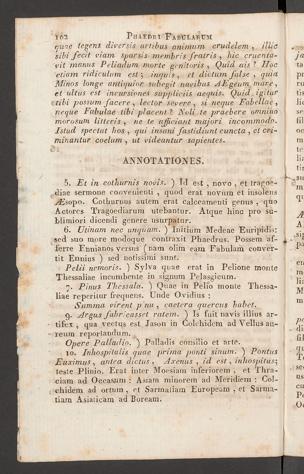 102 PHAEDRI FABULARUM
quae tegens diversis artibus animum crudelem, illic
sibi fecit viam sparsis membris fratris, hic cruenta-
vit manus Peliadum morte genitoris, Quid ais? Hoc
etiam ridiculum est, inquis, et dictum false, quia
Minos longe antiquior subegit navibus AEgeum mare,
et ultus est incursiones suppliciis aequis. Quid igitur
tibi possum facere, lector severe, si neque Fabellae,
neque Fabulae tibi placent? Noli te praebere omnino
morosum litteris, ne te afficiant majori incommodo.
Istud spectat hos, qui insani fastidiunt cuncta, et cri-
minantur coelum, ut videantur sapientes.
ANNOTATIONES.
5. Et in cothurnis novis. ) Id est, novo, et tragoe-
diae sermone convenienti, quod erat novum et insolens
Æsopo. Cothurnus autem erat calceamenti genus, quo
Actores Tragoediarum utebantur. Atque hinc pro su-
blimiori dicendi genere usurpatur.
6. Utinam nec unquam. ) Initium Medeae Euripidis:
sed suo more modoque contraxit Phaedrus. Possem af-
ferre Ennianos versus (nam olim eam Fabulam conver-
tit Ennius) sed notissimi sunt.
Pelii nemoris. ) Sylva quae erat in Pelione monte
Thessaliae incumbente in signum Pelasgicum.
7. Pinus Thessala. ) Quae in Pelio monte Thessa-
liae reperitur frequens. Unde Ovidius:
Summa virent pinu, caetera quercus habet.
9. Argus fabricasset ratem. ) Is fuit navis illius ar-
tifex, qua vectus est Jason in Colchidem ad Vellus au-
reum reportandum.
Opere Palladio. ) Palladis consilio et arte.
10. Inhospitalis quae prima ponti sinum. ) Pontus
Euxinus, antea dictus, Axenus, id est, inhospitus;
teste Plinio. Erat inter Moesiam inferiorem, et Thra-
ciam ad Occasum: Asiam minorem ad Meridiem: Col-
chidem ad ortum, et Sarmatiam Europeam, et Sarma-
tiam Asiaticam ad Boream.